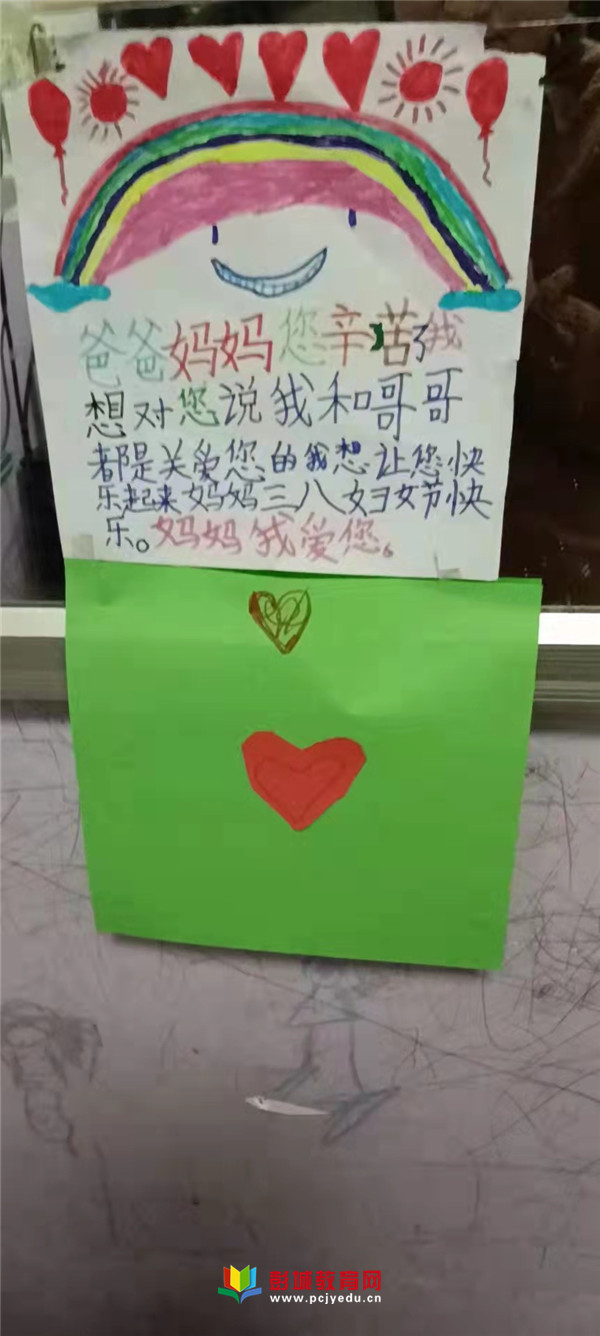 爸爸妈妈您辛苦了我
想对您说我和哥哥
都是关爱您的我想让您快
乐起来妈妈三八妇女节快
乐。妈妈我爱您。
彭城教育网
www.pcjyedu.cn